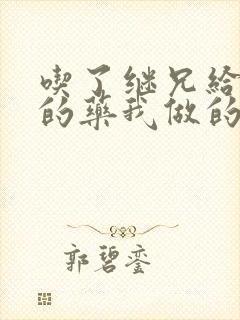 喫了继兄给
的藥我做的
郭碧銮